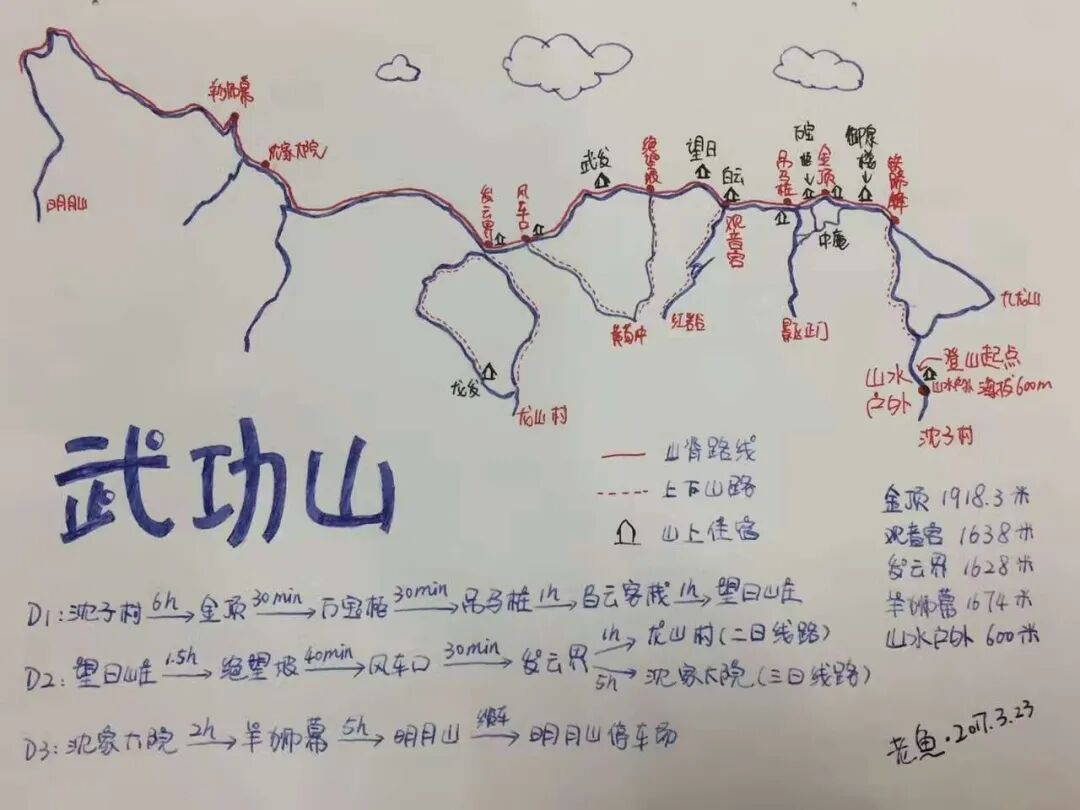 羊狮幕
沈家大院
明月山
发云界
风车口
武发
绝望坡
望日
白云
观音宫
吊马桩
万宝
金顶
中庵
铁蹄峰
九龙山
黄荀冲
红岩谷
景区正门
龙发
龙山村
登山起点
山水户外 海拔600m
山水
户外
沈子村
武功山
山脊路线
上下山路
山上住宿
金顶 1918.3米
观音宫 1638米
发云界 1628米
羊狮幕 1674米
山水户外 600米
D1:沈子村 6h→ 金顶 30min→ 万宝柜 30min→ 吊马桩 1h→ 白云客栈 1h→ 望日山庄
D2:望日山庄 1.5h→ 绝望坡 40min→ 风车口 30min→ 发云界 1h→ 龙山村(二日线路)
5h→ 沈家大院(三日线路)
D3:沈家大院 2h→ 羊狮幕 5h→ 明月山 缆车→ 明月山停车场
老鱼·2017.3.23